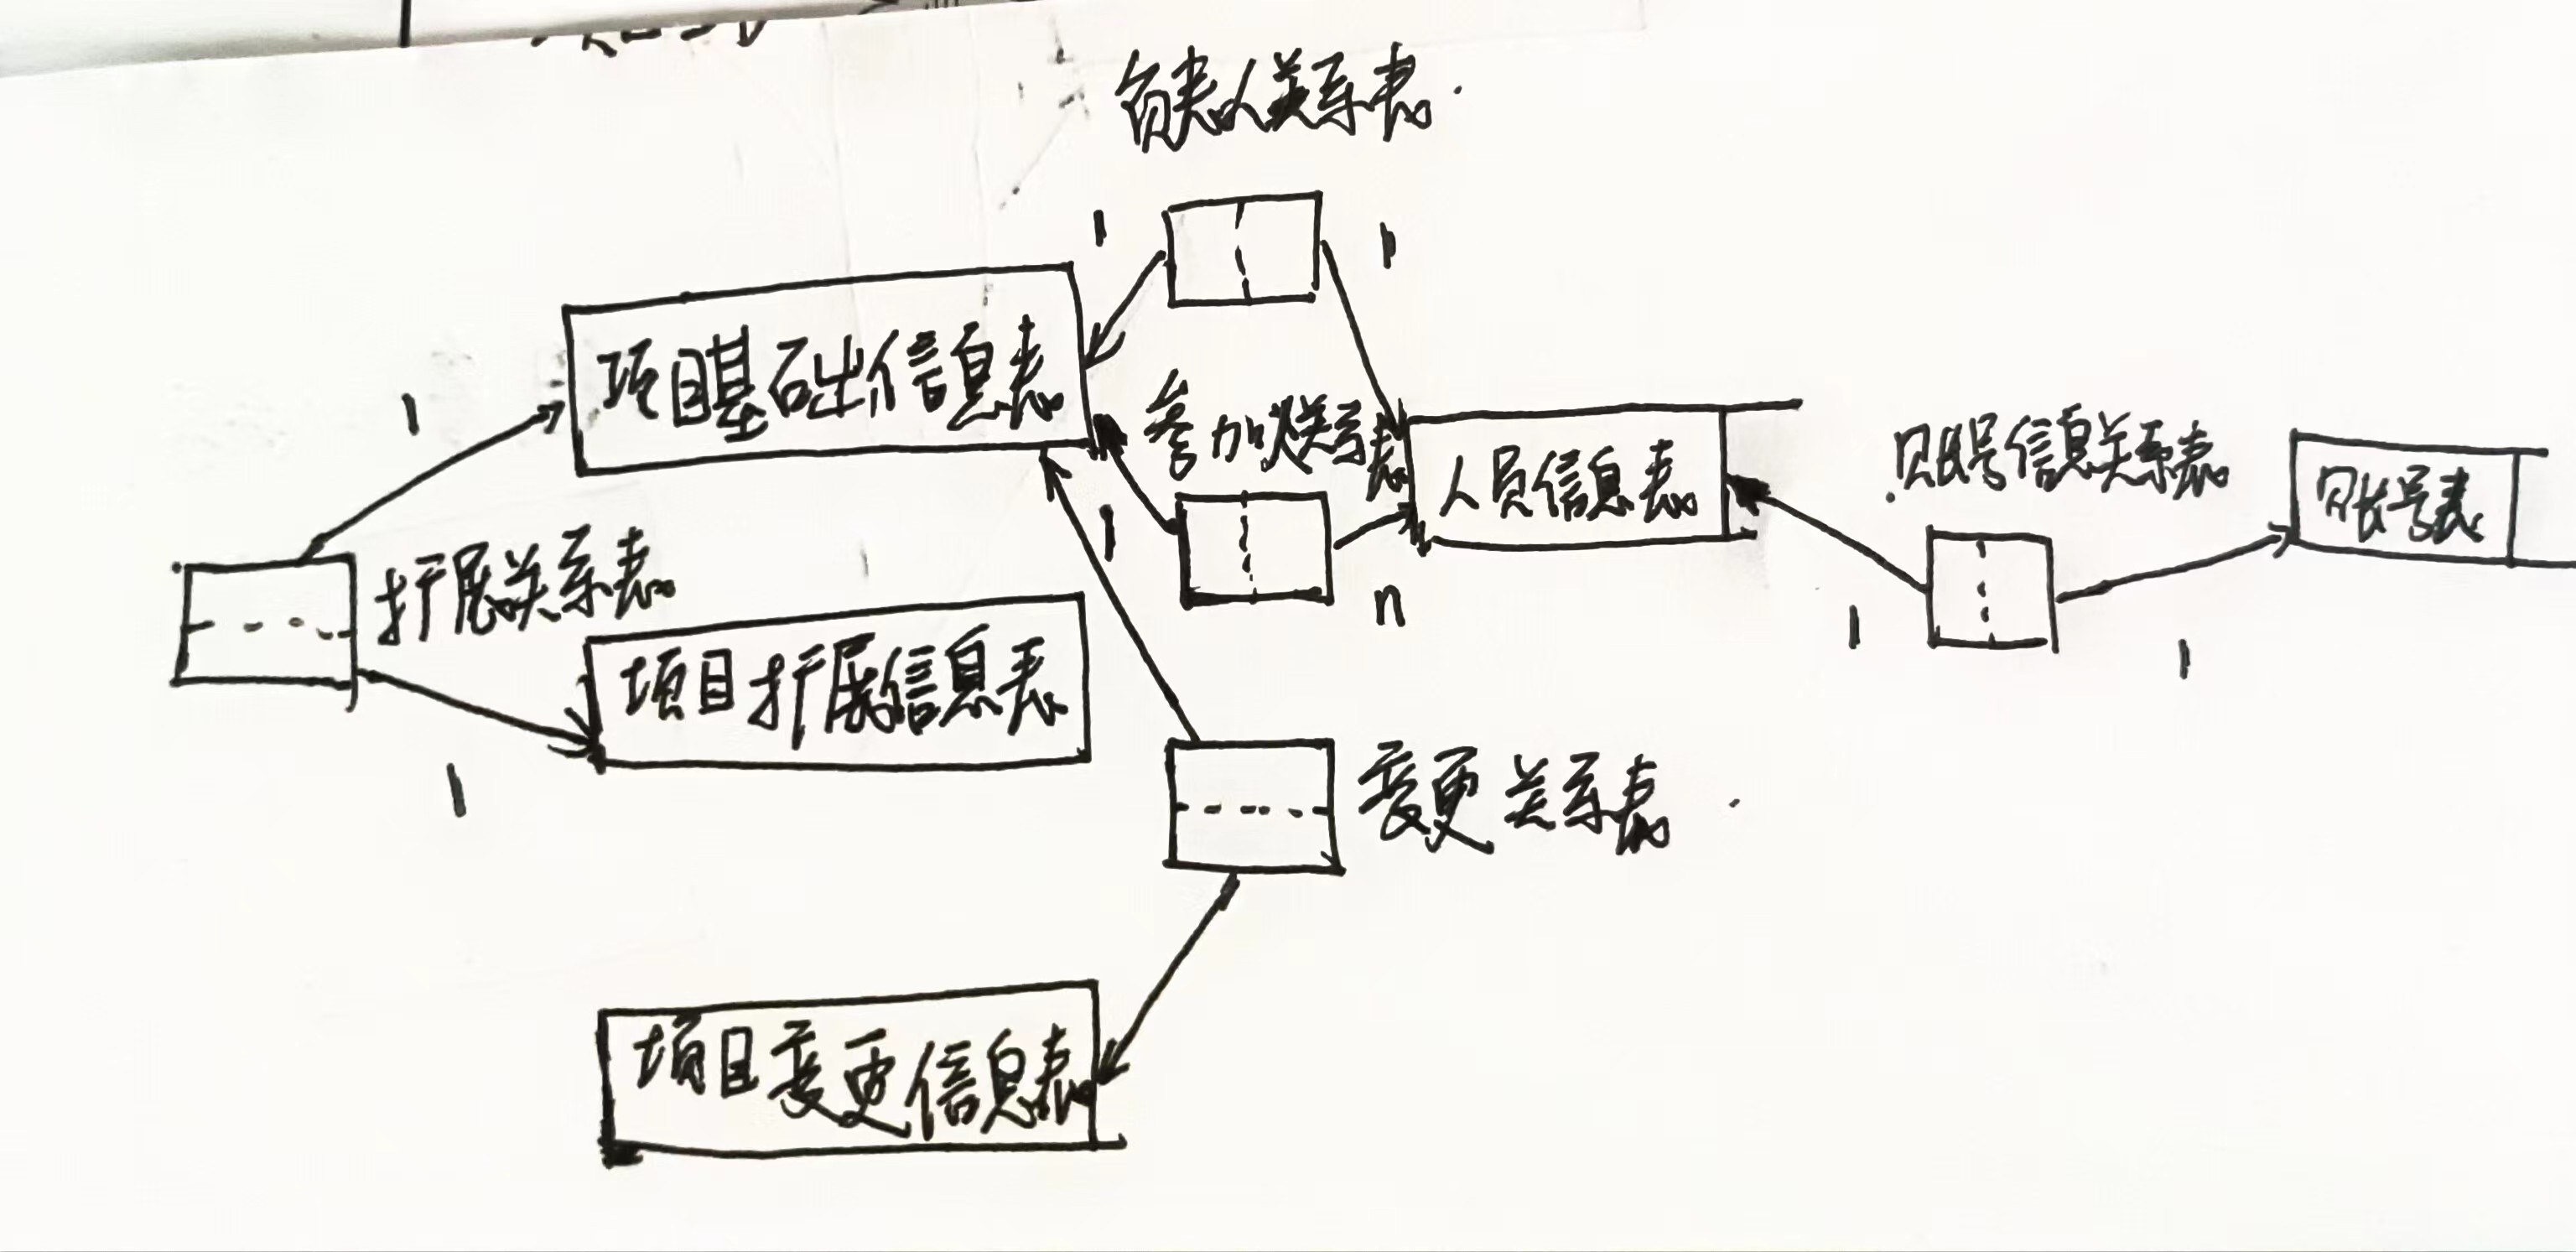 负责人关系表
1
1
项目基础信息表
参加人关系表
人员信息表
账号信息关系表
账号表
1
1
n
1
1
扩展关系表
项目扩展信息表
1
变更关系表
项目变更信息表